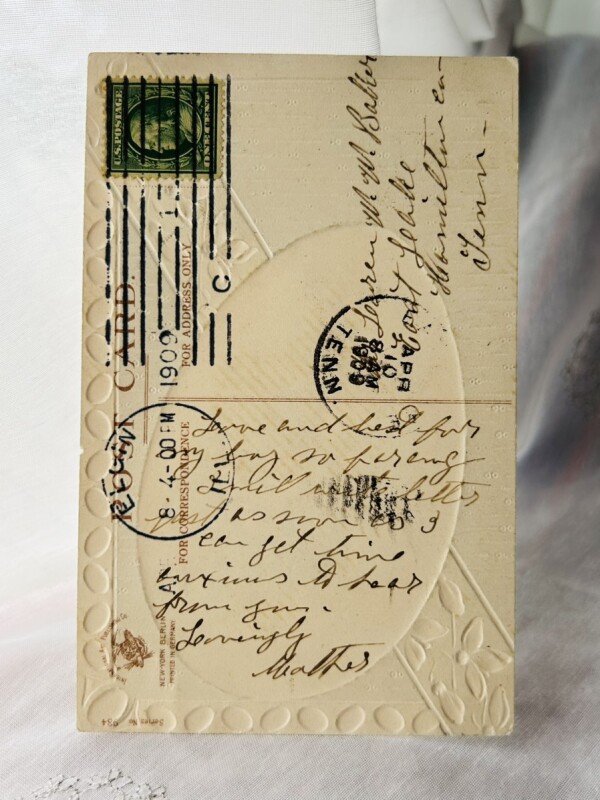 POST CARD.
FOR ADDRESS ONLY
FOR CORRESPONDENCE
U.S. POSTAGE
1909
8 4-00 PM
ILL
C
TENN.
APR
10
8 AM
1909
Loren M. M. Baker
Hamilton co
Tenn-
Love and best for
my boy so far away
I will write letter
just as soon as I
can get time
anxious to hear
from you.
Lovingly
Mother
NEW-YORK BERLIN
PRINTED IN GERMANY
Series No 934